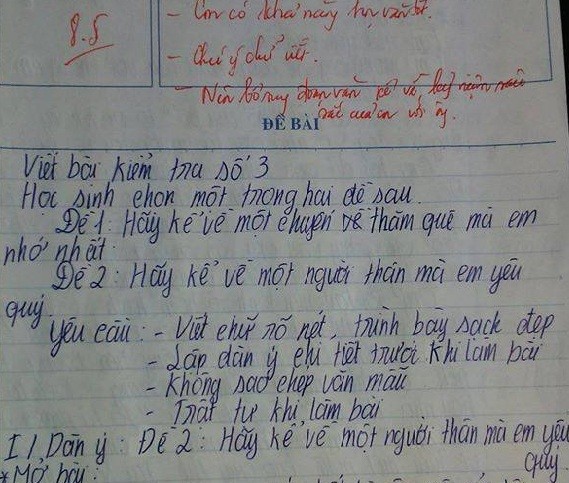 8.5
- Con có khả năng tự viết.
- Chú ý chữ viết.
- Nên bổ sung đoạn văn kể về
của con với ông.
ĐỀ BÀI
Viết bài kiểm tra số 3
Học sinh chọn một trong hai đề sau.
Đề 1: Hãy kể về một chuyến về thăm quê mà em
nhớ nhất.
Đề 2: Hãy kể về một người thân mà em yêu
quý.
Yêu cầu: - Viết chữ rõ nét, trình bày sạch đẹp
- Lập dàn ý chi tiết trước khi làm bài
- Không sao chép văn mẫu
- Trật tự khi làm bài
I/ Dàn ý: Đề 2: Hãy kể về một người thân mà em yêu
quý.
* Mở bài: